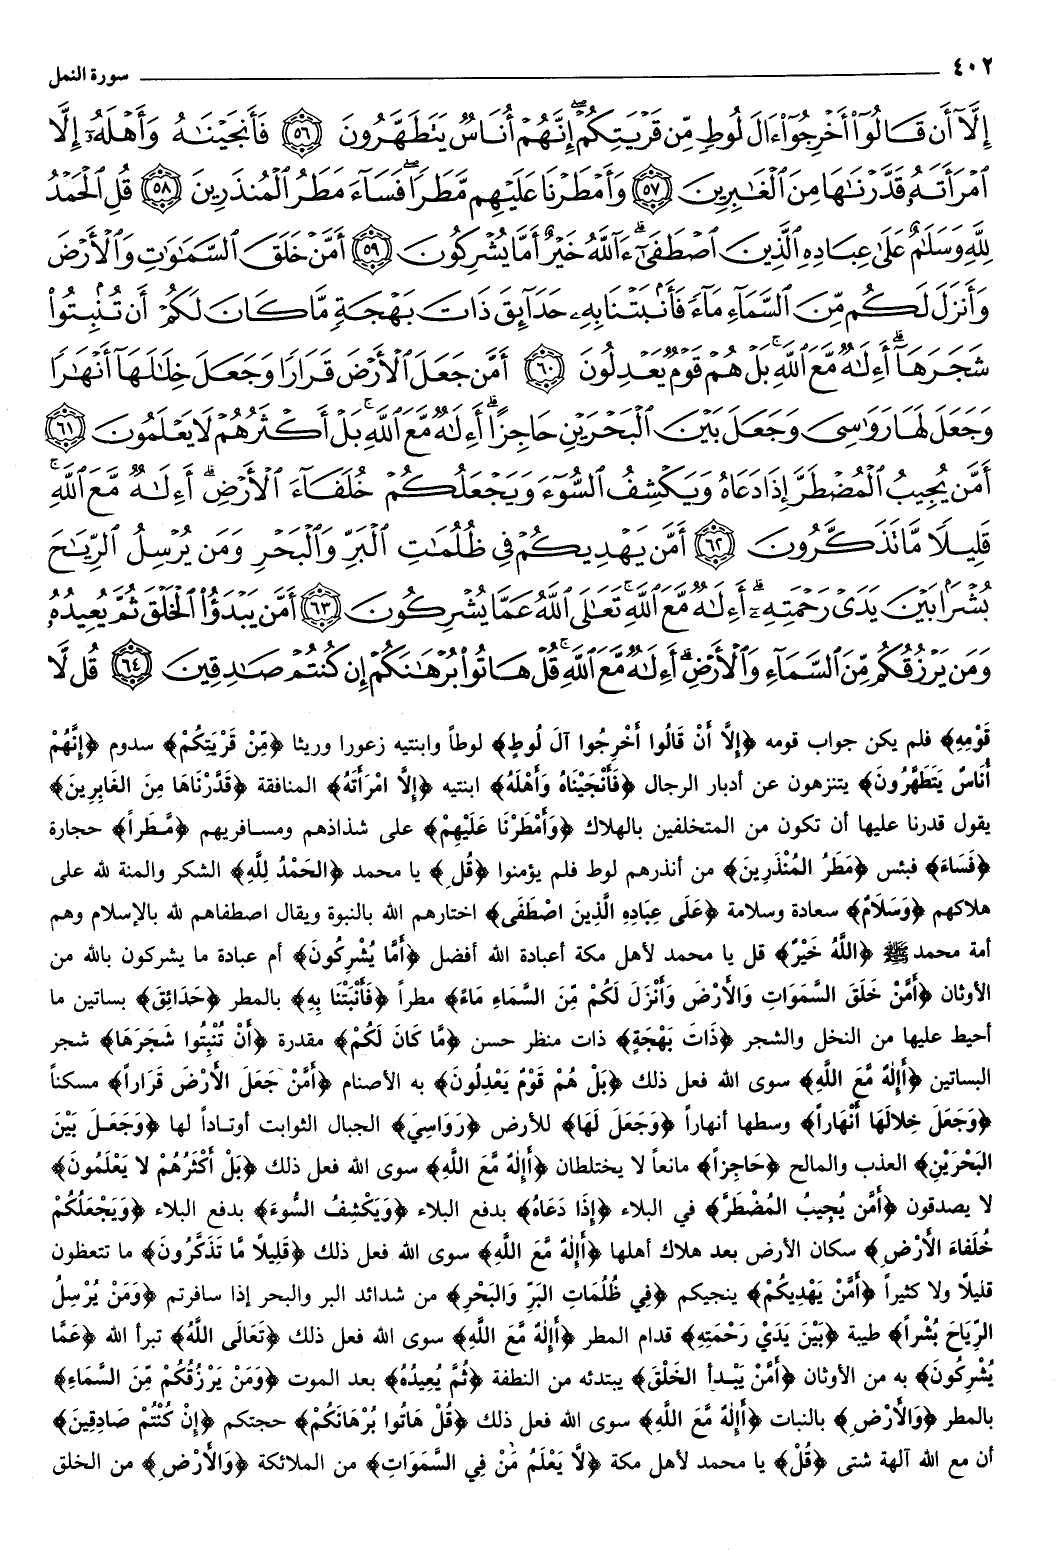 ٤٠٢ سورة النمل
إِلَّآ أَن قَالُوٓا۟ أَخْرِجُوٓا۟ ءَالَ لُوطٍ مِّن قَرْيَتِكُمْ ۖ إِنَّهُمْ أُنَاسٌ يَتَطَهَّرُونَ ﴿٥٦﴾ فَأَنجَيْنَٰهُ وَأَهْلَهُۥٓ إِلَّا
ٱمْرَأَتَهُۥ قَدَّرْنَٰهَا مِنَ ٱلْغَٰبِرِينَ ﴿٥٧﴾ وَأَمْطَرْنَا عَلَيْهِم مَّطَرًا ۖ فَسَآءَ مَطَرُ ٱلْمُنذَرِينَ ﴿٥٨﴾ قُلِ ٱلْحَمْدُ
لِلَّهِ وَسَلَٰمٌ عَلَىٰ عِبَادِهِ ٱلَّذِينَ ٱصْطَفَىٰٓ ۗ ءَآللَّهُ خَيْرٌ أَمَّا يُشْرِكُونَ ﴿٥٩﴾ أَمَّنْ خَلَقَ ٱلسَّمَٰوَٰتِ وَٱلْأَرْضَ
وَأَنزَلَ لَكُم مِّنَ ٱلسَّمَآءِ مَآءً فَأَنۢبَتْنَا بِهِۦ حَدَآئِقَ ذَاتَ بَهْجَةٍ مَّا كَانَ لَكُمْ أَن تُنۢبِتُوا۟
شَجَرَهَآ ۗ أَءِلَٰهٌ مَّعَ ٱللَّهِ ۚ بَلْ هُمْ قَوْمٌ يَعْدِلُونَ ﴿٦٠﴾ أَمَّن جَعَلَ ٱلْأَرْضَ قَرَارًا وَجَعَلَ خِلَٰلَهَآ أَنْهَٰرًا
وَجَعَلَ لَهَا رَوَٰسِىَ وَجَعَلَ بَيْنَ ٱلْبَحْرَيْنِ حَاجِزًا ۗ أَءِلَٰهٌ مَّعَ ٱللَّهِ ۚ بَلْ أَكْثَرُهُمْ لَا يَعْلَمُونَ ﴿٦١﴾
أَمَّن يُجِيبُ ٱلْمُضْطَرَّ إِذَا دَعَاهُ وَيَكْشِفُ ٱلسُّوٓءَ وَيَجْعَلُكُمْ خُلَفَآءَ ٱلْأَرْضِ ۗ أَءِلَٰهٌ مَّعَ ٱللَّهِ ۚ
قَلِيلًا مَّا تَذَكَّرُونَ ﴿٦٢﴾ أَمَّن يَهْدِيكُمْ فِى ظُلُمَٰتِ ٱلْبَرِّ وَٱلْبَحْرِ وَمَن يُرْسِلُ ٱلرِّيَٰحَ
بُشْرًۢا بَيْنَ يَدَىْ رَحْمَتِهِۦٓ ۗ أَءِلَٰهٌ مَّعَ ٱللَّهِ ۚ تَعَٰلَى ٱللَّهُ عَمَّا يُشْرِكُونَ ﴿٦٣﴾ أَمَّن يَبْدَؤُا۟ ٱلْخَلْقَ ثُمَّ يُعِيدُهُۥ
وَمَن يَرْزُقُكُم مِّنَ ٱلسَّمَآءِ وَٱلْأَرْضِ ۗ أَءِلَٰهٌ مَّعَ ٱللَّهِ ۚ قُلْ هَاتُوا۟ بُرْهَٰنَكُمْ إِن كُنتُمْ صَٰدِقِينَ ﴿٦٤﴾ قُل لَّا
قَوْمِهِ﴾ فلم يكن جواب قومه ﴿إِلَّا أَنْ قَالُوا أَخْرِجُوا آلَ لُوطٍ﴾ لوطاً وابنتيه زعورا وريثا ﴿مِّنْ قَرْيَتِكُمْ﴾ سدوم ﴿إِنَّهُمْ
أُنَاسٌ يَتَطَهَّرُونَ﴾ يتنزهون عن أدبار الرجال ﴿فَأَنْجَيْنَاهُ وَأَهْلَهُ﴾ ابنتيه ﴿إِلَّا امْرَأَتَهُ﴾ المنافقة ﴿قَدَّرْنَاهَا مِنَ الغَابِرِينَ﴾
يقول قدرنا عليها أن تكون من المتخلفين بالهلاك ﴿وَأَمْطَرْنَا عَلَيْهِمْ﴾ على شذاذهم ومسافريهم ﴿مَّطَراً﴾ حجارة
﴿فَسَاءَ﴾ فبئس ﴿مَطَرُ المُنْذَرِينَ﴾ من أنذرهم لوط فلم يؤمنوا ﴿قُلِ﴾ يا محمد ﴿الحَمْدُ لِلَّهِ﴾ الشكر والمنة لله على
هلاكهم ﴿وَسَلَامٌ﴾ سعادة وسلامة ﴿عَلَى عِبَادِهِ الَّذِينَ اصْطَفَى﴾ اختارهم الله بالنبوة ويقال اصطفاهم لله بالإسلام وهم
أمة محمد ﷺ ﴿اللَّهُ خَيْرٌ﴾ قل يا محمد لأهل مكة أعبادة الله أفضل ﴿أَمَّا يُشْرِكُونَ﴾ أم عبادة ما يشركون بالله من
الأوثان ﴿أَمَّنْ خَلَقَ السَّمَوَاتِ وَالأَرْضَ وَأَنْزَلَ لَكُمْ مِّنَ السَّمَاءِ مَاءً﴾ مطراً ﴿فَأَنْبَتْنَا بِهِ﴾ بالمطر ﴿حَدَائِقَ﴾ بساتين ما
أحيط عليها من النخل والشجر ﴿ذَاتَ بَهْجَةٍ﴾ ذات منظر حسن ﴿مَّا كَانَ لَكُمْ﴾ مقدرة ﴿أَنْ تُنْبِتُوا شَجَرَهَا﴾ شجر
البساتين ﴿أَإِلَهٌ مَّعَ اللَّهِ﴾ سوى الله فعل ذلك ﴿بَلْ هُمْ قَوْمٌ يَعْدِلُونَ﴾ به الأصنام ﴿أَمَّنْ جَعَلَ الأَرْضَ قَرَاراً﴾ مسكناً
﴿وَجَعَلَ خِلالَهَا أَنْهَاراً﴾ وسطها أنهاراً ﴿وَجَعَلَ لَهَا﴾ للأرض ﴿رَوَاسِيَ﴾ الجبال الثوابت أوتاداً لها ﴿وَجَعَلَ بَيْنَ
البَحْرَيْنِ﴾ العذب والمالح ﴿حَاجِزاً﴾ مانعاً لا يختلطان ﴿أَإِلَهٌ مَّعَ اللَّهِ﴾ سوى الله فعل ذلك ﴿بَلْ أَكْثَرُهُمْ لا يَعْلَمُونَ﴾
لا يصدقون ﴿أَمَّن يُجِيبُ المُضْطَرَّ﴾ في البلاء ﴿إِذَا دَعَاهُ﴾ بدفع البلاء ﴿وَيَكْشِفُ السُّوءَ﴾ بدفع البلاء ﴿وَيَجْعَلُكُمْ
خُلَفاءَ الأَرْضِ﴾ سكان الأرض بعد هلاك أهلها ﴿أَإِلَهٌ مَّعَ اللَّهِ﴾ سوى الله فعل ذلك ﴿قَلِيلًا مَّا تَذَكَّرُونَ﴾ ما تتعظون
قليلًا ولا كثيراً ﴿أَمَّنْ يَهْدِيكُمْ﴾ ينجيكم ﴿فِي ظُلُمَاتِ البَرِّ وَالبَحْرِ﴾ من شدائد البر والبحر إذا سافرتم ﴿وَمَنْ يُرْسِلُ
الرِّيَاحَ بُشْراً﴾ طيبة ﴿بَيْنَ يَدَيْ رَحْمَتِهِ﴾ قدام المطر ﴿أَإِلَهٌ مَّعَ اللَّهِ﴾ سوى الله فعل ذلك ﴿تَعَالَى اللَّهُ﴾ تبرأ الله ﴿عَمَّا
يُشْرِكُونَ﴾ به من الأوثان ﴿أَمَّنْ يَبْدأ الخَلْقَ﴾ يبتدئه من النطفة ﴿ثُمَّ يُعِيدُهُ﴾ بعد الموت ﴿وَمَنْ يَرْزُقُكُمْ مِّنَ السَّمَاءِ﴾
بالمطر ﴿وَالأَرْضِ﴾ بالنبات ﴿أَإِلَهٌ مَّعَ اللَّهِ﴾ سوى الله فعل ذلك ﴿قُلْ هَاتُوا بُرْهَانَكُمْ﴾ حجتكم ﴿إِنْ كُنْتُمْ صَادِقِينَ﴾
أن مع الله آلهة شتى ﴿قُلْ﴾ يا محمد لأهل مكة ﴿لَّا يَعْلَمُ مَنْ فِي السَّمَوَاتِ﴾ من الملائكة ﴿وَالأَرْضِ﴾ من الخلق